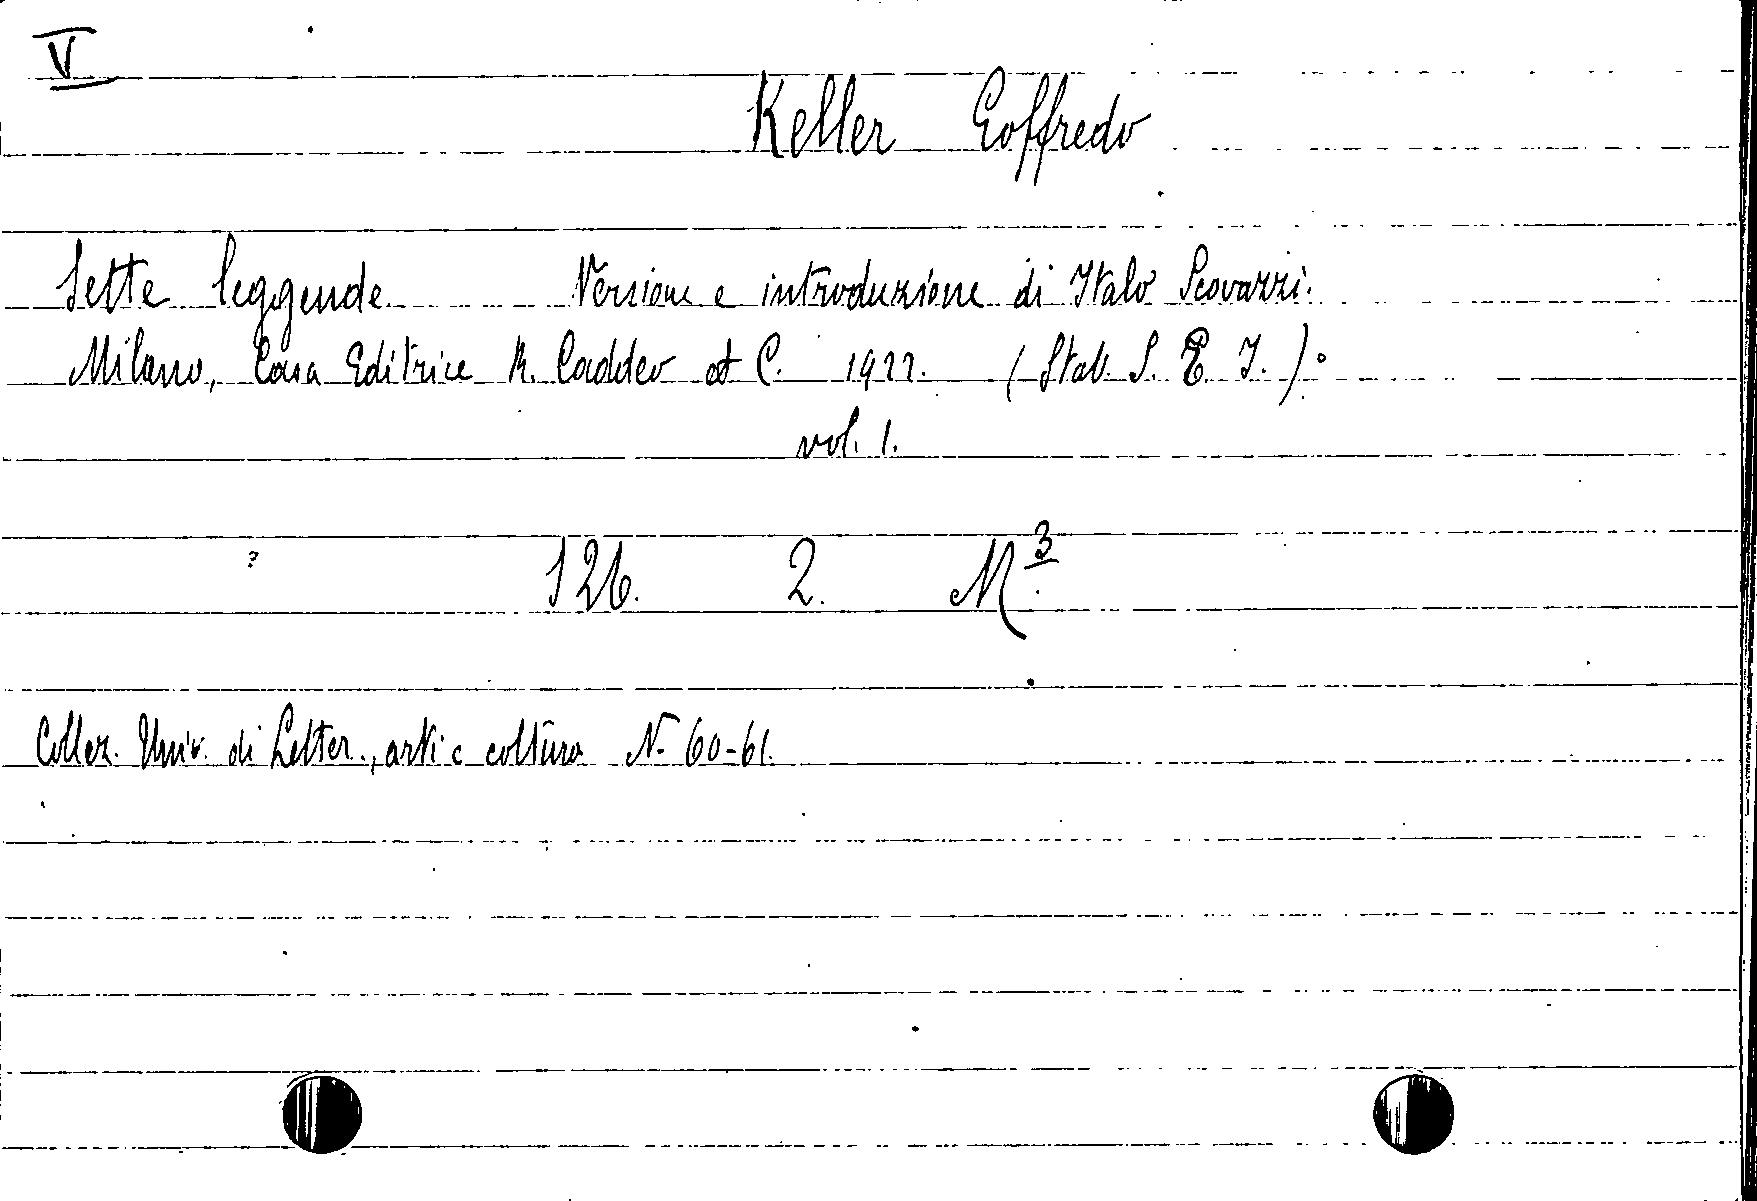 V
Keller Goffredo
Sette leggende Versione e introduzione di Italo Scovazzi.
Milano, Casa Editrice R. Caddeo et C. 1922. (Stab. S. E. I.).
vol. 1.
126. 2. M3.
Collez. Univ. di Letter., arti e coltura N. 60-61.